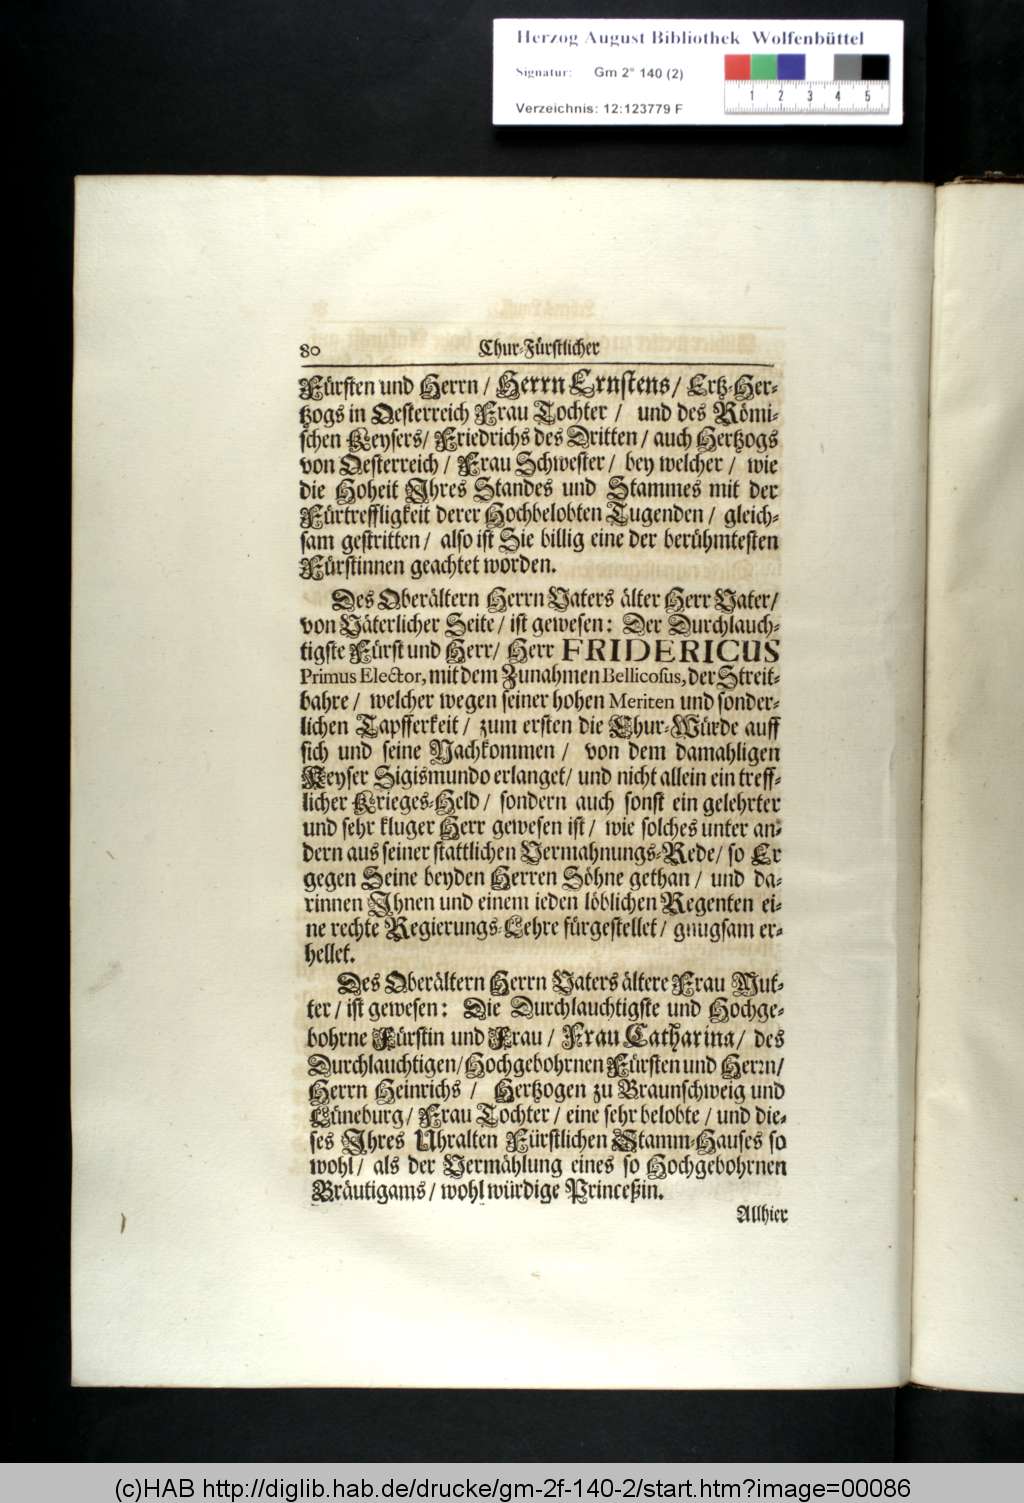 Herzog August Bibliothek Wolfenbüttel
Signatur: Gm 2° 140 (2)
1 2 3 4 5
Verzeichnis: 12:123779 F
80 Chur-Fürstlicher
Fürsten und Herrn / Herrn Ernstens / Ertz-Her-
tzogs in Oesterreich Frau Tochter / und des Römi-
schen Keysers / Friedrichs des Dritten / auch Hertzogs
von Oesterreich / Frau Schwester / bey welcher / wie
die Hoheit Ihres Standes und Stammes mit der
Fürtreffligkeit derer Hochbelobten Tugenden / gleich-
sam gestritten / also ist Sie billig eine der berühmtesten
Fürstinnen geachtet worden.
Des Oberältern Herrn Vaters älter Herr Vater /
von Väterlicher Seite / ist gewesen: Der Durchlauch-
tigste Fürst und Herr / Herr FRIDERICUS
Primus Elector, mit dem Zunahmen Bellicosus, der Streit-
bahre / welcher wegen seiner hohen Meriten und sonder-
lichen Tapfferkeit / zum ersten die Chur-Würde auff
sich und seine Nachkommen / von dem damahligen
Keyser Sigismundo erlanget / und nicht allein ein treff-
licher Krieges-Held / sondern auch sonst ein gelehrter
und sehr kluger Herr gewesen ist / wie solches unter an-
dern aus seiner stattlichen Vermahnungs-Rede / so Er
gegen Seine beyden Herren Söhne gethan / und da-
rinnen Ihnen und einem ieden löblichen Regenten ei-
ne rechte Regierungs-Lehre fürgestellet / gnugsam er-
hellet.
Des Oberältern Herrn Vaters ältere Frau Mut-
ter / ist gewesen: Die Durchlauchtigste und Hochge-
bohrne Fürstin und Frau / Frau Catharina / des
Durchlauchtigen / Hochgebohrnen Fürsten und Herrn /
Herrn Heinrichs / Hertzogen zu Braunschweig und
Lüneburg / Frau Tochter / eine sehr belobte / und die-
ses Ihres Uhralten Fürstlichen Stamm-Hauses so
wohl / als der Vermählung eines so Hochgebohrnen
Bräutigams / wohl würdige Princeßin.
Allhier
(c)HAB http://diglib.hab.de/drucke/gm-2f-140-2/start.htm?image=00086